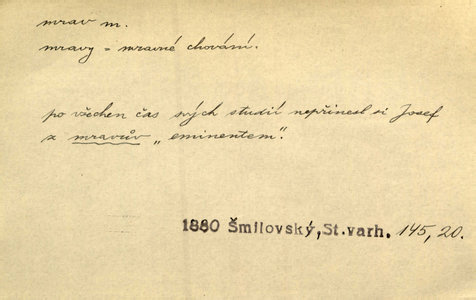 mrav m.
mravy = mravné chování.
po všechen čas svých studií nepřinesl si Josef
z mravův „eminentem".
1880 Šmilovský, St. varh. 145, 20.